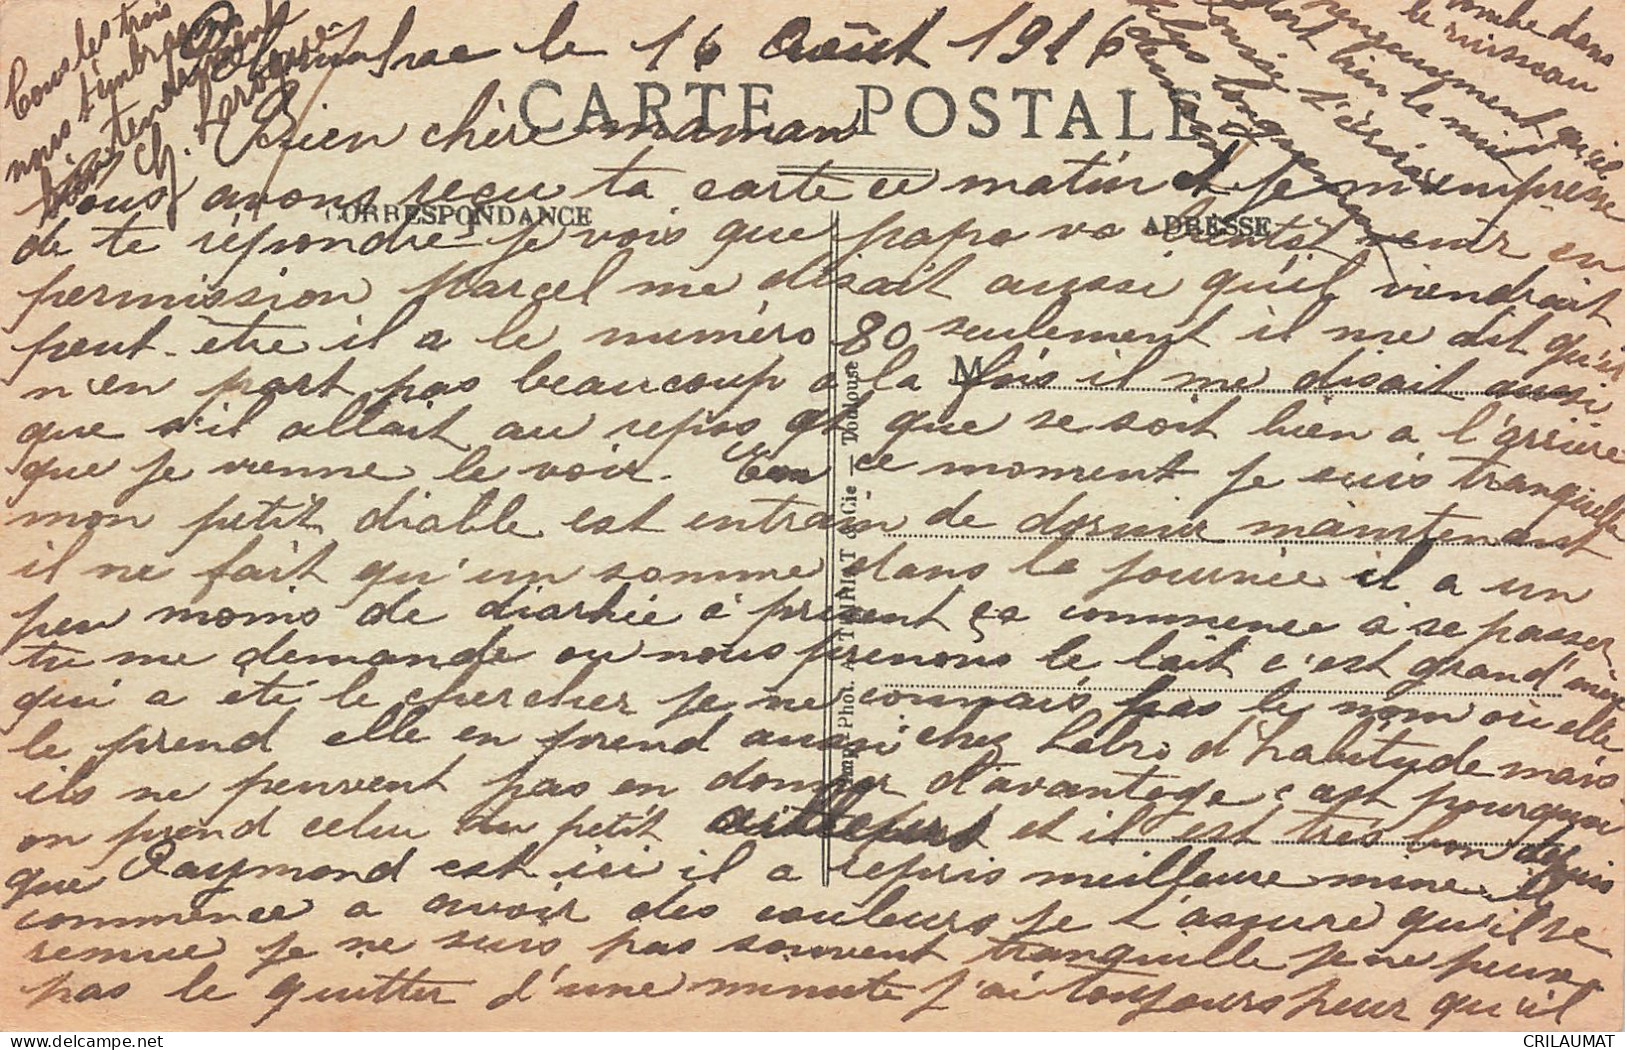 le 16 Août 1916
CARTE POSTALE
Bien chère maman
Nous avons reçu ta carte ce matin et je m'empresse
CORRESPONDANCE
ADRESSE
de te répondre je vois que papa va bientôt venir en
permission Marcel me disait aussi qu'il viendrait
peut-être il a le numéro 80 seulement il me dit qu'il
n'en part pas beaucoup a la fois il me disait aussi
M
que s'il allait au repos et que se soit bien a l'arrière
que je vienne le voir. En ce moment je suis tranquille
mon petit diable est entrain de dormir maintenant
il ne fait qu'un somme dans la journée il a un
peu moins de diarhée a présent ça commence a se passer
tu me demande ou nous prenons le lait c'est grand'mère
qui a été le chercher je ne connais pas le nom ou elle
le prend elle en prend aussi chez Labro d'habitude mais
ils ne peuvent pas en donner d'avantage c'est pourquoi
on prend celui du petit ailleurs et il est très bon depuis
que Raymond est ici il a repris meilleure mine il
commence a avoir des couleurs je t'assure qu'il se
remue je ne suis pas souvent tranquille je ne peux
pas le quitter d'une minute j'ai toujours peur qu'il
tombe dans
le ruisseau
qu'il
dort bien la nuit
plus longuement
demain
Tous les trois
nous t'embrassons
bien tendrement
Ch.
Phot.
& Cie — Toulouse
CRILAUMAT